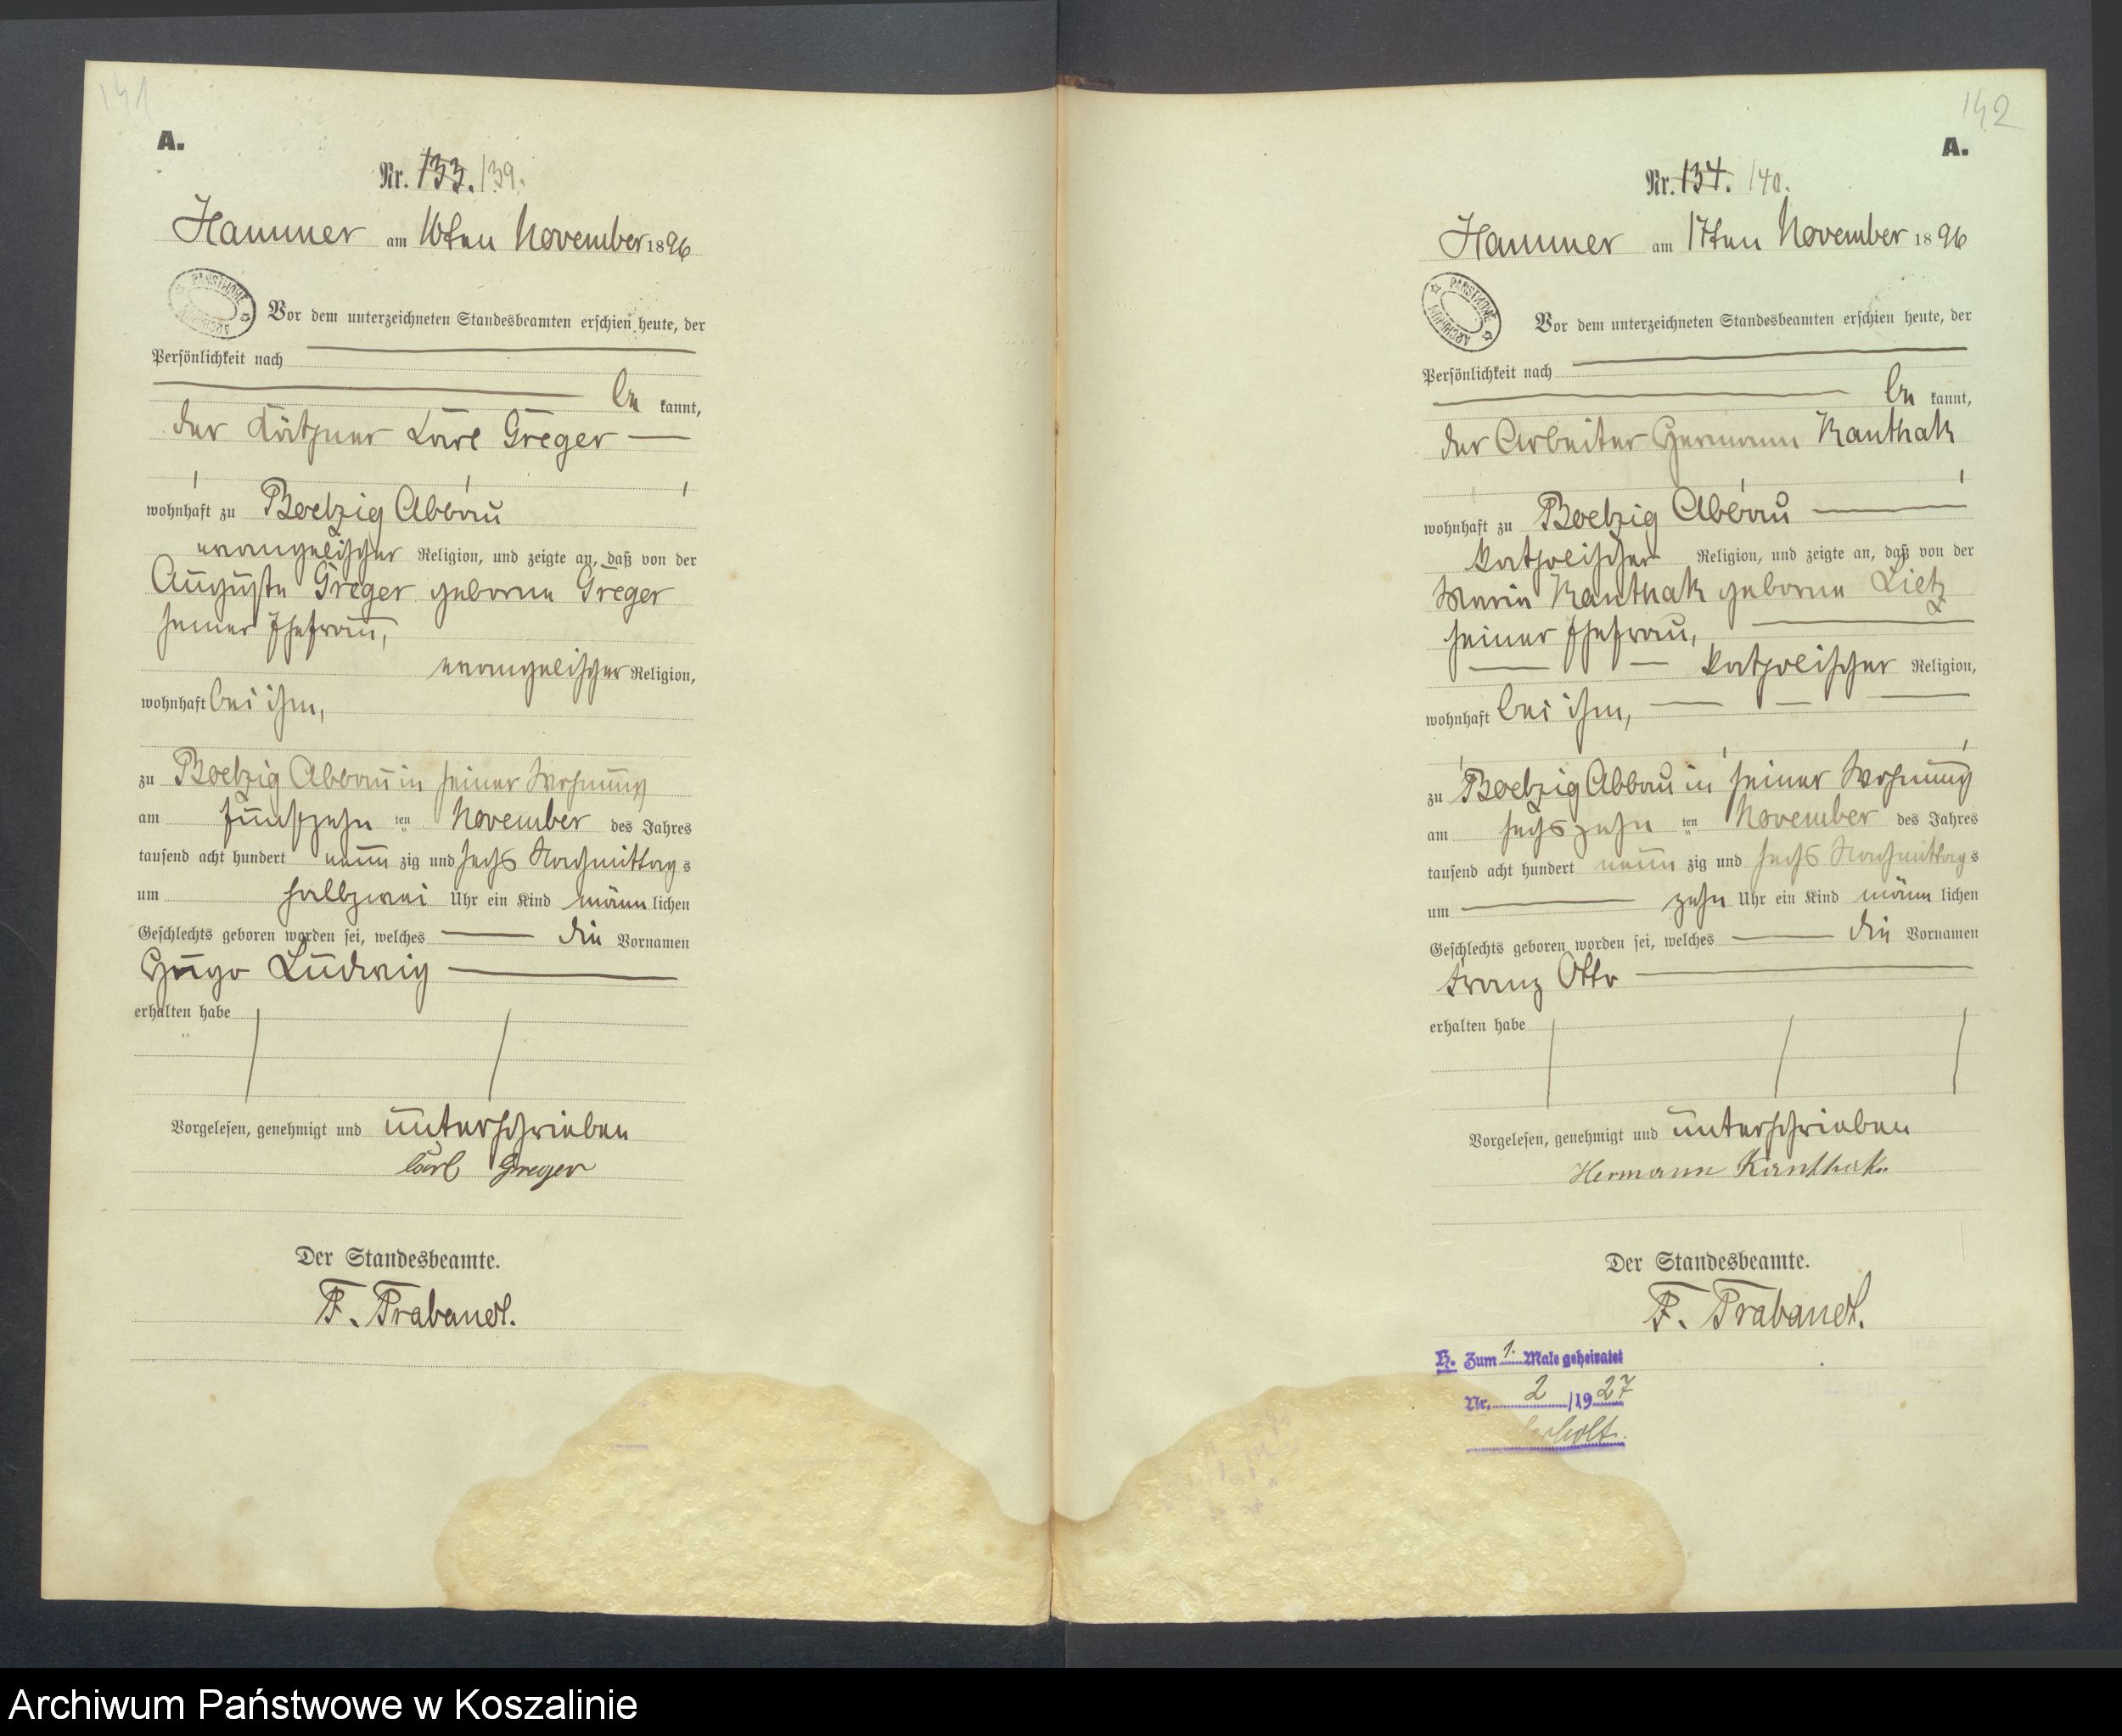 141
A.
Nr. 133. 139.
Hammer am 16ten November 1896
Vor dem unterzeichneten Standesbeamten erschien heute, der
Persönlichkeit nach
be kannt,
der Käthner Karl Greger
wohnhaft zu Boelzig Abbau
evangelischer Religion, und zeigte an, daß von der
Auguste Greger geborne Greger
seiner Ehefrau,
evangelischer Religion,
wohnhaft bei ihm,
zu Boelzig Abbau in seiner Wohnung
am fünfzehn ten November des Jahres
tausend acht hundert neun zig und sechs Nachmittag s
um halbzwei Uhr ein Kind männ lichen
Geschlechts geboren worden sei, welches die Vornamen
Hugo Ludwig
erhalten habe
Vorgelesen, genehmigt und unterschrieben
Carl Greger
Der Standesbeamte.
F. Trabandt.
142
A.
Nr. 134. 140.
Hammer am 17ten November 1896
PAŃSTWOWE ARCHIWUM
Vor dem unterzeichneten Standesbeamten erschien heute, der
Persönlichkeit nach
be kannt,
der Arbeiter Hermann Kanthak
wohnhaft zu Boelzig Abbau
katholischer Religion, und zeigte an, daß von der
Maria Kanthak geborne Lietz
seiner Ehefrau,
katholischer Religion,
wohnhaft bei ihm,
zu Boelzig Abbau in seiner Wohnung
am sechszehn ten November des Jahres
tausend acht hundert neun zig und sechs Nachmittag s
um zehn Uhr ein Kind männ lichen
Geschlechts geboren worden sei, welches die Vornamen
Franz Otto
erhalten habe
Vorgelesen, genehmigt und unterschrieben
Hermann Kanthak.
Der Standesbeamte.
F. Trabandt.
H. Zum 1. Male geheiratet
Nr. 2 /1927
Archiwum Państwowe w Koszalinie